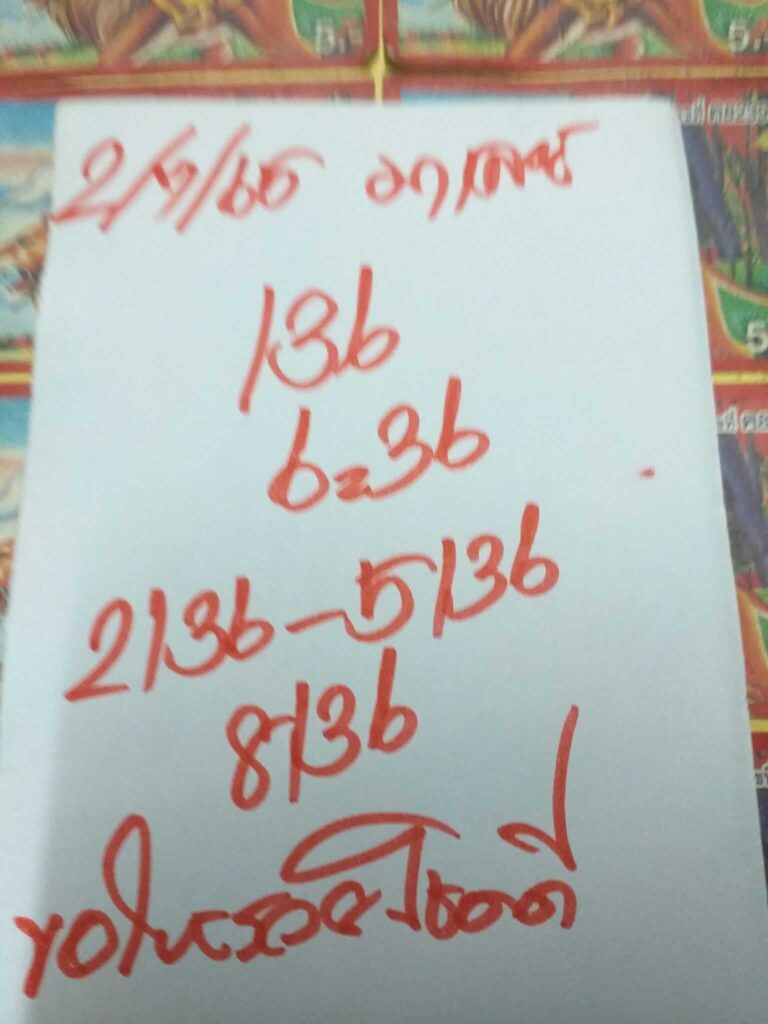 2/7/65
136
6=36
2136-5136
8136
ขอให้รวยโชคดี